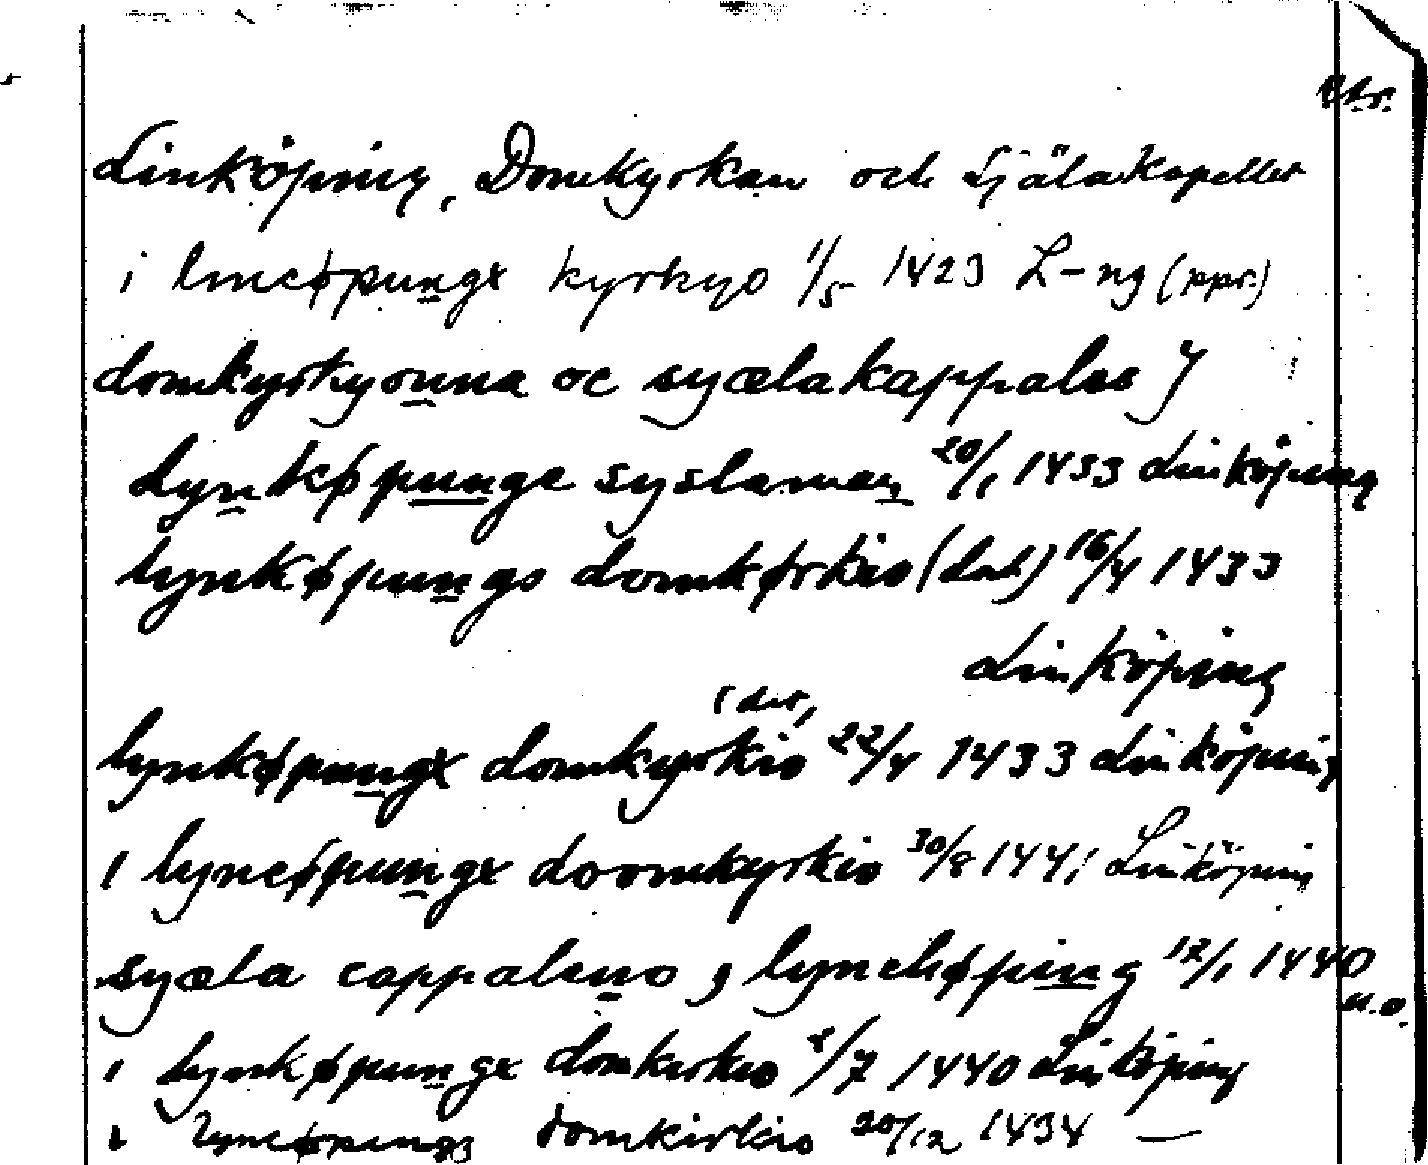 Linköping, Domkyrkan och Själakapellet
i lincøpungx kyrkyo 1/5 1423 L-ng (ppr.)
domkyrkyonna oc syælakappales J
Lynkøpunge syslaman 20/1 1433 Linköping
lynkøpungs domkørkio (dat) 16/4 1433
Linköping
(dat)
lynkøpungx domkyrkio 22/4 1433 Linköping
i lyncøpungx doomkyrkio 30/8 1441 Linköping
syæla cappaleno j lynchøping 12/1 1440
u.a.
i lynkøpungx domkirkio 8/7 1440 Linköping
i lyncøpungx domkirkio 20/12 1434 —